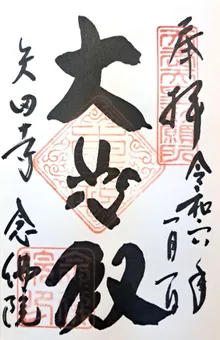 奉拝
令和六年
一月一日
大悲殿
矢田寺 念佛院